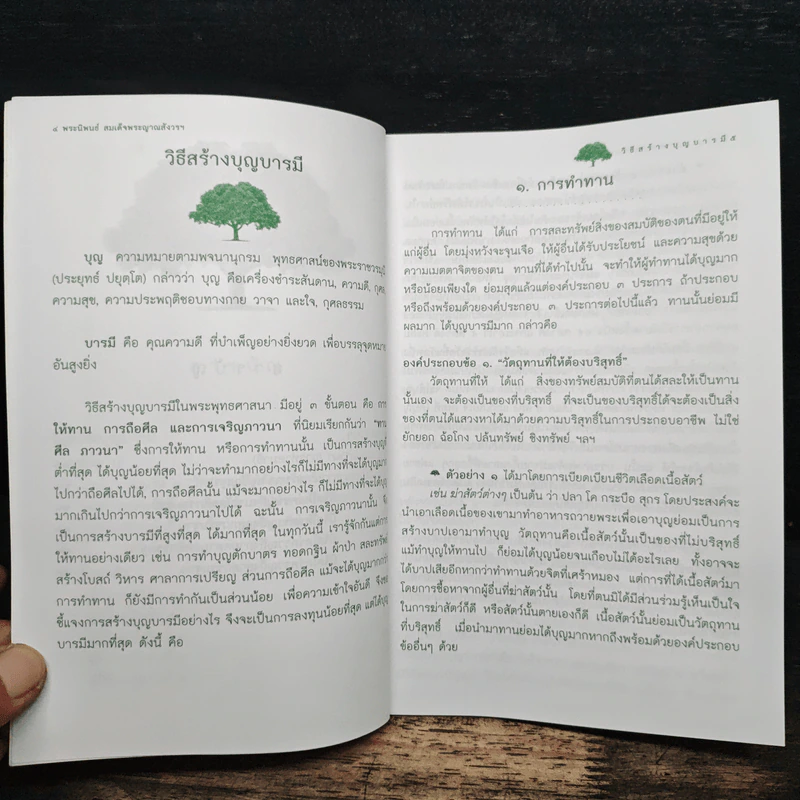 ๔ พระนิพนธ์ สมเด็จพระญาณสังวรฯ
วิธีสร้างบุญบารมี
บุญ ความหมายตามพจนานุกรม พุทธศาสน์ของพระราชวรมุนี
(ประยุทธ์ ปยุตฺโต) กล่าวว่า บุญ คือเครื่องชำระสันดาน, ความดี, กุศล,
ความสุข, ความประพฤติชอบทางกาย วาจา และใจ, กุศลธรรม
บารมี คือ คุณความดี ที่บำเพ็ญอย่างยิ่งยวด เพื่อบรรลุจุดหมาย
อันสูงยิ่ง
วิธีสร้างบุญบารมีในพระพุทธศาสนา มีอยู่ ๓ ขั้นตอน คือ การ
ให้ทาน การถือศีล และการเจริญภาวนา ที่นิยมเรียกกันว่า "ทาน
ศีล ภาวนา" ซึ่งการให้ทาน หรือการทำทานนั้น เป็นการสร้างบุญที่
ต่ำที่สุด ได้บุญน้อยที่สุด ไม่ว่าจะทำมากอย่างไรก็ไม่มีทางที่จะได้บุญมาก
ไปกว่าถือศีลไปได้, การถือศีลนั้น แม้จะมากอย่างไร ก็ไม่มีทางที่จะได้บุญ
มากเกินไปกว่าการเจริญภาวนาไปได้ ฉะนั้น การเจริญภาวนานั้น จึง
เป็นการสร้างบารมีที่สูงที่สุด ได้มากที่สุด ในทุกวันนี้ เรารู้จักกันแต่การ
ให้ทานอย่างเดียว เช่น การทำบุญตักบาตร ทอดกฐิน ผ้าป่า สละทรัพย์
สร้างโบสถ์ วิหาร ศาลาการเปรียญ ส่วนการถือศีล แม้จะได้บุญมากกว่า
การทำทาน ก็ยังมีการทำกันเป็นส่วนน้อย เพื่อความเข้าใจอันดี จึงขอ
ชี้แจงการสร้างบุญบารมีอย่างไร จึงจะเป็นการลงทุนน้อยที่สุด แต่ได้บุญ
บารมีมากที่สุด ดังนี้ คือ
วิธีสร้างบุญบารมี ๕
๑. การทำทาน
การทำทาน ได้แก่ การสละทรัพย์สิ่งของสมบัติของตนที่มีอยู่ให้
แก่ผู้อื่น โดยมุ่งหวังจะจุนเจือ ให้ผู้อื่นได้รับประโยชน์ และความสุขด้วย
ความเมตตาจิตของตน ทานที่ได้ทำไปนั้น จะทำให้ผู้ทำทานได้บุญมาก
หรือน้อยเพียงใด ย่อมสุดแล้วแต่องค์ประกอบ ๓ ประการ ถ้าประกอบ
หรือถึงพร้อมด้วยองค์ประกอบ ๓ ประการต่อไปนี้แล้ว ทานนั้นย่อมมี
ผลมาก ได้บุญบารมีมาก กล่าวคือ
องค์ประกอบข้อ ๑. "วัตถุทานที่ให้ต้องบริสุทธิ์"
วัตถุทานที่ให้ ได้แก่ สิ่งของทรัพย์สมบัติที่ตนได้สละให้เป็นทาน
นั้นเอง จะต้องเป็นของที่บริสุทธิ์ ที่จะเป็นของบริสุทธิ์ได้จะต้องเป็นสิ่ง
ของที่ตนได้แสวงหาได้มาด้วยความบริสุทธิ์ในการประกอบอาชีพ ไม่ใช่
ยักยอก ฉ้อโกง ปล้นทรัพย์ ชิงทรัพย์ ฯลฯ
ตัวอย่าง ๑ ได้มาโดยการเบียดเบียนชีวิตเลือดเนื้อสัตว์
เช่น ฆ่าสัตว์ต่างๆ เป็นต้น ว่า ปลา โค กระบือ สุกร โดยประสงค์จะ
นำเอาเลือดเนื้อของเขามาทำอาหารถวายพระเพื่อเอาบุญย่อมเป็นการ
สร้างบาปเอามาทำบุญ วัตถุทานคือเนื้อสัตว์นั้นเป็นของที่ไม่บริสุทธิ์
แม้ทำบุญให้ทานไป ก็ย่อมได้บุญน้อยจนเกือบไม่ได้อะไรเลย ทั้งอาจจะ
ได้บาปเสียอีกหากว่าทำทานด้วยจิตที่เศร้าหมอง แต่การที่ได้เนื้อสัตว์มา
โดยการซื้อหาจากผู้อื่นที่ฆ่าสัตว์นั้น โดยที่ตนมิได้มีส่วนร่วมรู้เห็นเป็นใจ
ในการฆ่าสัตว์ก็ดี หรือสัตว์นั้นตายเองก็ดี เนื้อสัตว์นั้นย่อมเป็นวัตถุทาน
ที่บริสุทธิ์ เมื่อนำมาทานย่อมได้บุญมากหากถึงพร้อมด้วยองค์ประกอบ
ข้ออื่นๆ ด้วย